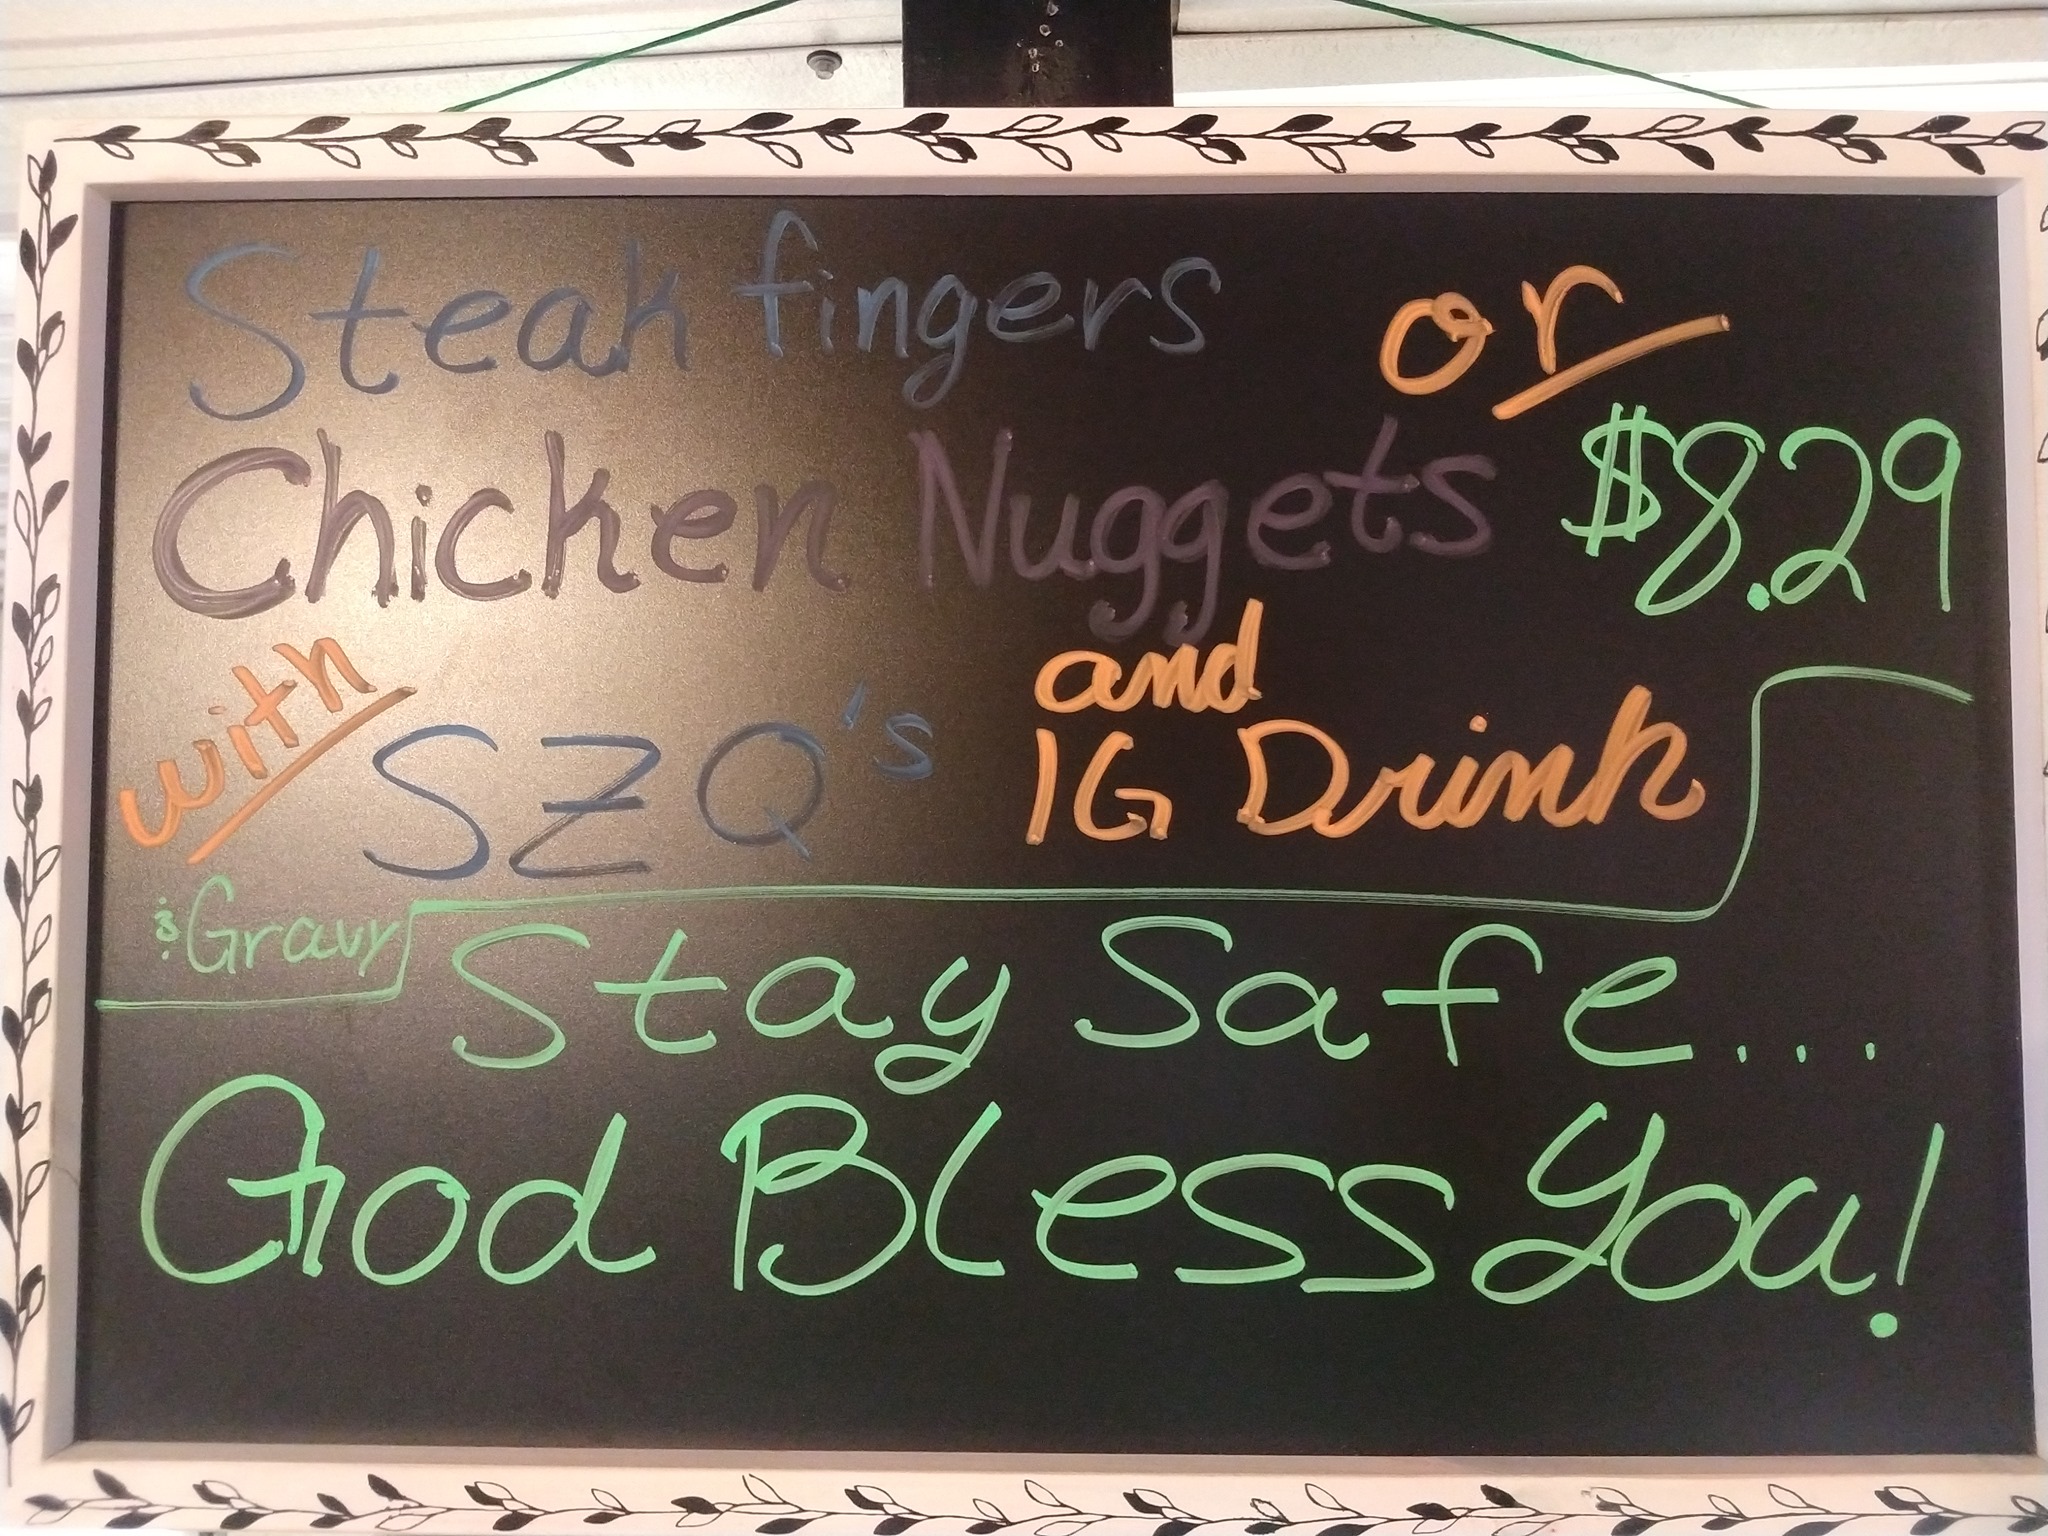 Steak fingers or
Chicken Nuggets $8.29
with SZQ's and
1G Drink
& Gravy
Stay Safe...
God Bless You!